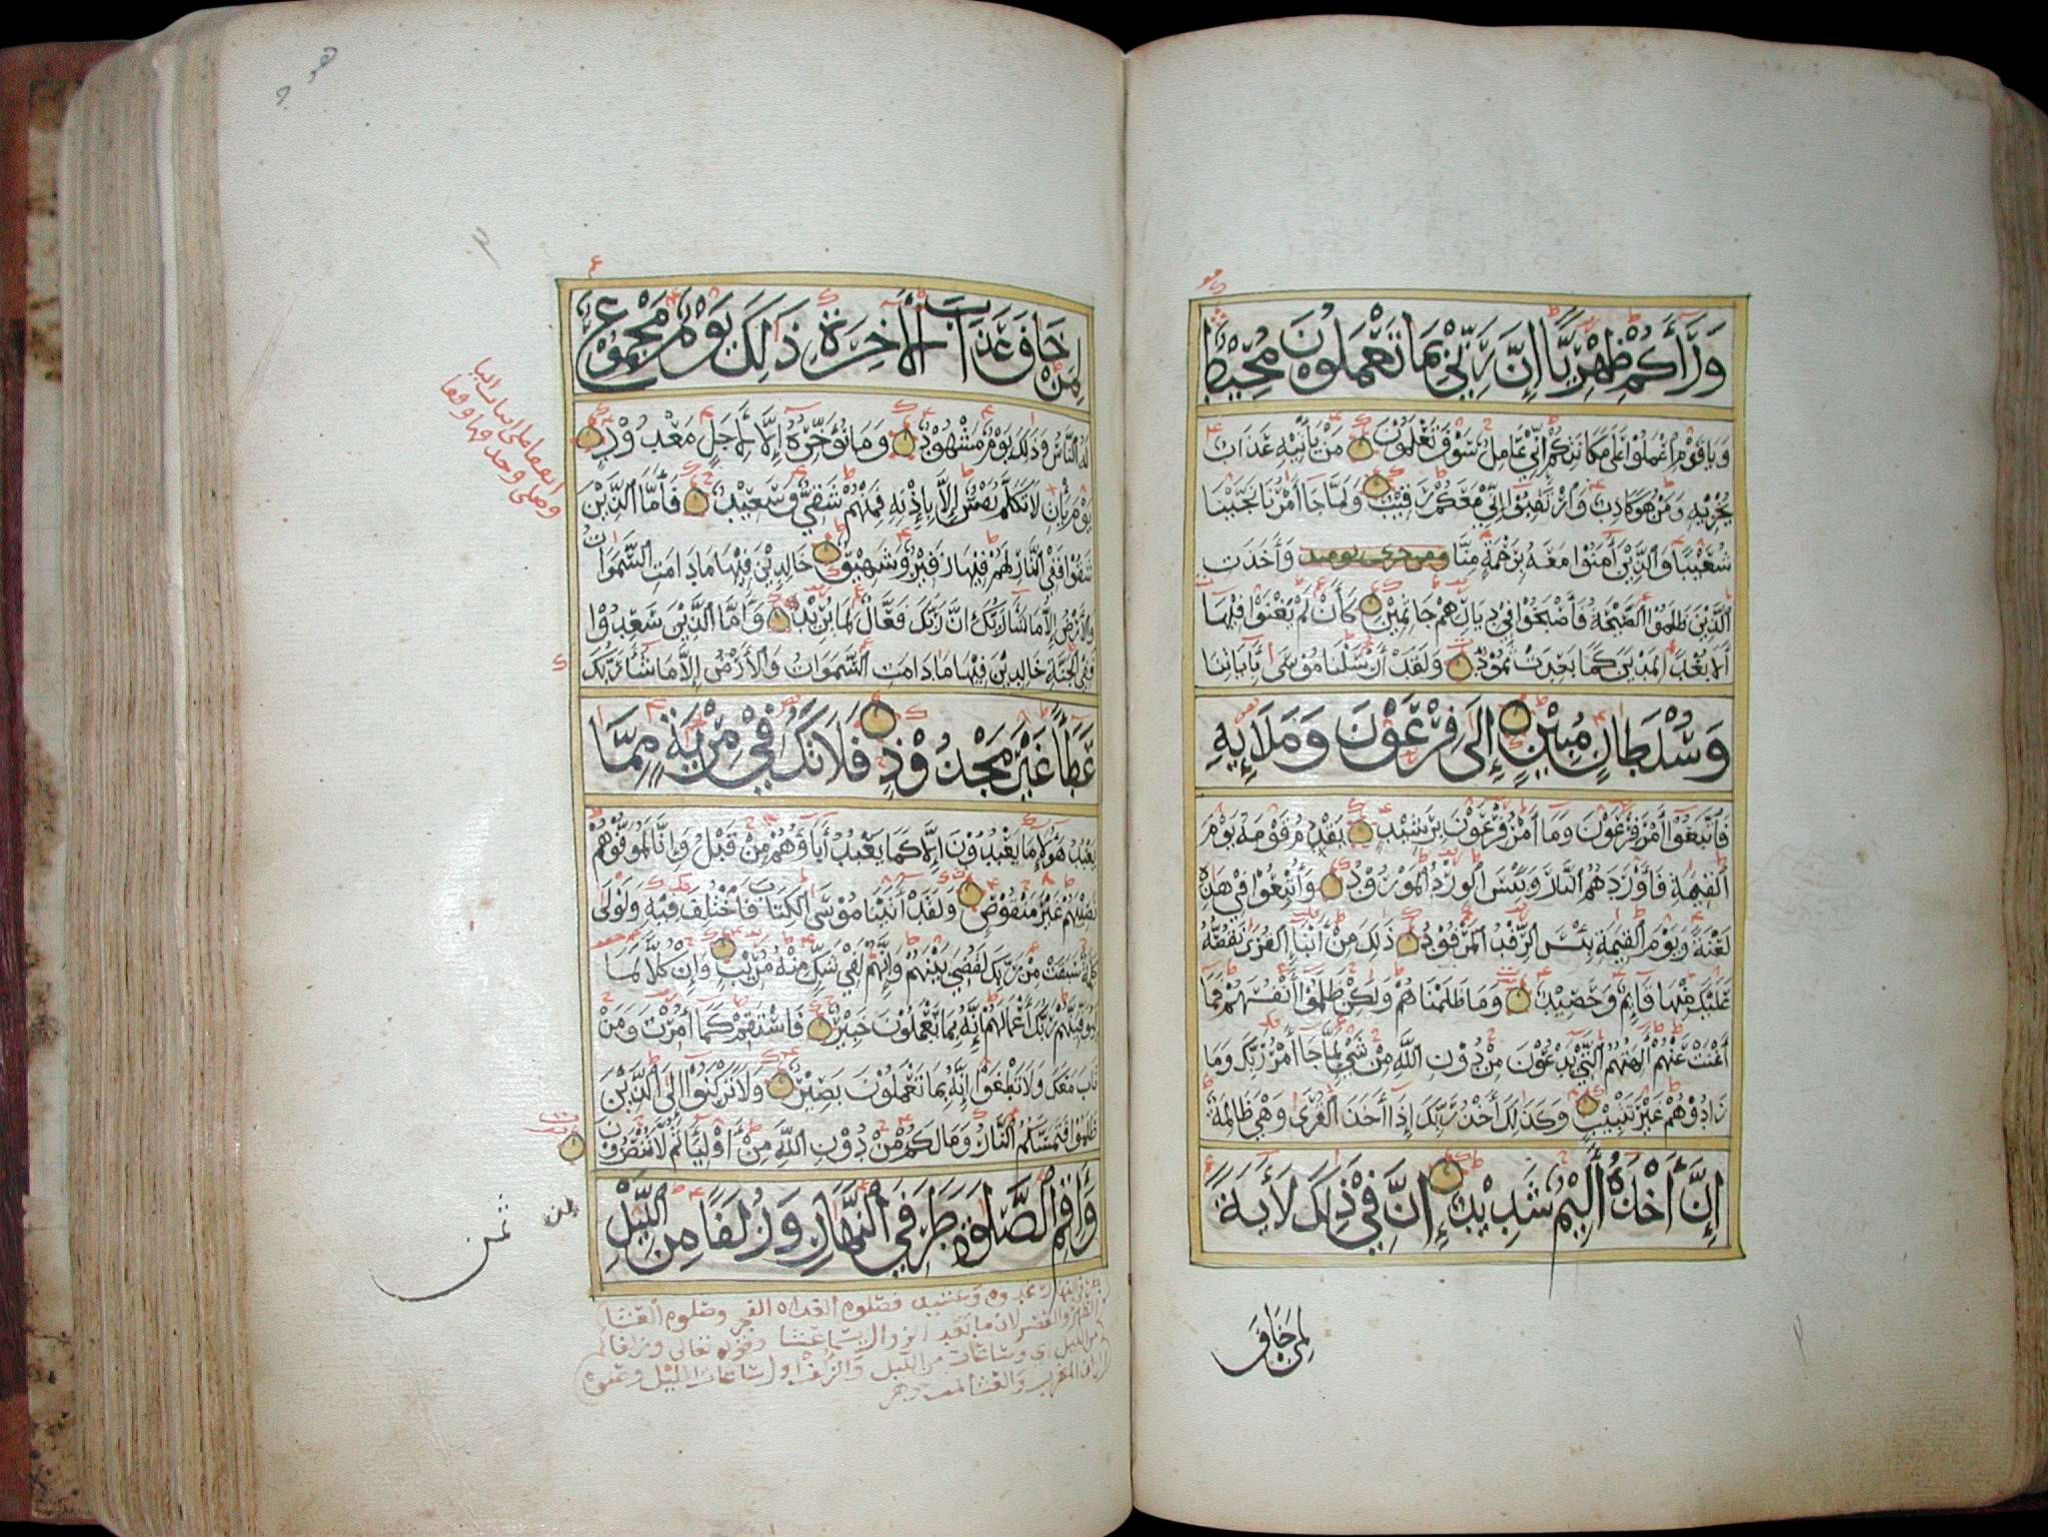 وَرَآءَكُمْ ظِهْرِيًّا إِنَّ رَبِّي بِمَا تَعْمَلُونَ مُحِيطٌ
وَيَا قَوْمِ اعْمَلُوا عَلَى مَكَانَتِكُمْ إِنِّي عَامِلٌ سَوْفَ تَعْلَمُونَ مَنْ يَأْتِيهِ عَذَابٌ
يُخْزِيهِ وَمَنْ هُوَ كَاذِبٌ وَارْتَقِبُوا إِنِّي مَعَكُمْ رَقِيبٌ وَلَمَّا جَا أَمْرُنَا نَجَّيْنَا
شُعَيْبًا وَالَّذِينَ أَمَنُوا مَعَهُ بِرَحْمَةٍ مِنَّا ومن خزي يومئذ وَأَخَذَتِ
الَّذِينَ ظَلَمُوا الصَّيْحَةُ فَأَصْبَحُوا فِي دِيَارِهِمْ جَاثِمِينَ كَأَنْ لَمْ يَغْنَوْا فِيهَا
أَلَا بُعْدًا لِمَدْيَنَ كَمَا بَعِدَتْ ثَمُودُ وَلَقَدْ أَرْسَلْنَا مُوسَى بِأَيَاتِنَا
وَسُلْطَانٍ مُبِينٍ إِلَى فِرْعَوْنَ وَمَلَإِيْهِ
فَاتَّبَعُوا أَمْرَ فِرْعَوْنَ وَمَا أَمْرُ فِرْعَوْنَ بِرَشِيدٍ يَقْدُمُ قَوْمَهُ يَوْمَ
الْقِيمَةِ فَأَوْرَدَهُمُ النَّارَ وَبِئْسَ الْوِرْدُ الْمَوْرُودُ وَأُتْبِعُوا فِي هَذِهِ
لَعْنَةً وَيَوْمَ الْقِيمَةِ بِئْسَ الرِّفْدُ الْمَرْفُودُ ذَلِكَ مِنْ أَنْبَا الْقُرَى نَقُصُّهُ
عَلَيْكَ مِنْهَا قَائِمٌ وَحَصِيدٌ وَمَا ظَلَمْنَاهُمْ وَلَكِنْ ظَلَمُوا أَنْفُسَهُمْ فَمَا
أَغْنَتْ عَنْهُمْ أَلِهَتُهُمُ الَّتِي يَدْعُونَ مِنْ دُونِ اللَّهِ مِنْ شَيْ لَمَّا جَا أَمْرُ رَبِّكَ وَمَا
زَادُوهُمْ غَيْرَ تَتْبِيبٍ وَكَذَلِكَ أَخْذُ رَبِّكَ إِذَا أَخَذَ الْقُرَى وَهْيَ ظَالِمَةٌ
إِنَّ أَخْذَهُ أَلِيمٌ شَدِيدٌ إِنَّ فِي ذَلِكَ لَأَيَةً
لمن خاف
لِمَنْ خَافَ عَذَابَ الْأَخِرَةِ ذَلِكَ يَوْمٌ مَجْمُوعٌ
لَهُ النَّاسُ وَذَلِكَ يَوْمٌ مَشْهُودٌ وَمَا نُؤَخِّرُهُ إِلَّا لِأَجَلٍ مَعْدُودٍ
يَوْمَ يَأْتِ لَا تَكَلَّمُ نَفْسٌ إِلَّا بِإِذْنِهِ فَمِنْهُمْ شَقِيٌّ وَسَعِيدٌ فَأَمَّا الَّذِينَ
شَقُوا فَفِي النَّارِ لَهُمْ فِيهَا زَفِيرٌ وَشَهِيقٌ خَالِدِينَ فِيهَا مَا دَامَتِ السَّمَوَاتُ
وَالْأَرْضُ إِلَّا مَا شَا رَبُّكَ إِنَّ رَبَّكَ فَعَّالٌ لِمَا يُرِيدُ وَأَمَّا الَّذِينَ سُعِدُوا
فَفِي الْجَنَّةِ خَالِدِينَ فِيهَا مَا دَامَتِ السَّمَوَاتُ وَالْأَرْضُ إِلَّا مَا شَا رَبُّكَ
عَطَآءً غَيْرَ مَجْذُوذٍ فَلَا تَكُ فِي مِرْيَةٍ مِمَّا
يَعْبُدُ هَؤُلَإِ مَا يَعْبُدُونَ إِلَّا كَمَا يَعْبُدُ أَبَاؤُهُمْ مِنْ قَبْلُ وَإِنَّا لَمُوَفُّوهُمْ
نَصِيبَهُمْ غَيْرَ مَنْقُوصٍ وَلَقَدْ أَتَيْنَا مُوسَى الْكِتَابَ فَاخْتُلِفَ فِيهِ وَلَوْلَى
كَلِمَةٌ سَبَقَتْ مِنْ رَبِّكَ لَقُضِيَ بَيْنَهُمْ وَإِنَّهُمْ لَفِي شَكٍّ مِنْهُ مُرِيبٍ وَإِنَّ كُلًّا لَمَا
لَيُوَفِّيَنَّهُمْ رَبُّكَ أَعْمَالَهُمْ إِنَّهُ بِمَا يَعْمَلُونَ خَبِيرٌ فَاسْتَقِمْ كَمَا أُمِرْتَ وَمَنْ
تَابَ مَعَكَ وَلَا تَطْغَوْا إِنَّهُ بِمَا تَعْمَلُونَ بَصِيرٌ وَلَا تَرْكَنُوا إِلَى الَّذِينَ
ظَلَمُوا فَتَمَسَّكُمُ النَّارُ وَمَا لَكُمْ مِنْ دُونِ اللَّهِ مِنْ أَوْلِيَا ثُمَّ لَا تُنْصَرُونَ
وَأَقِمِ الصَّلَوةَ طَرَفَيِ النَّهَارِ وَزُلَفًا مِنَ اللَّيْلِ
ثمن